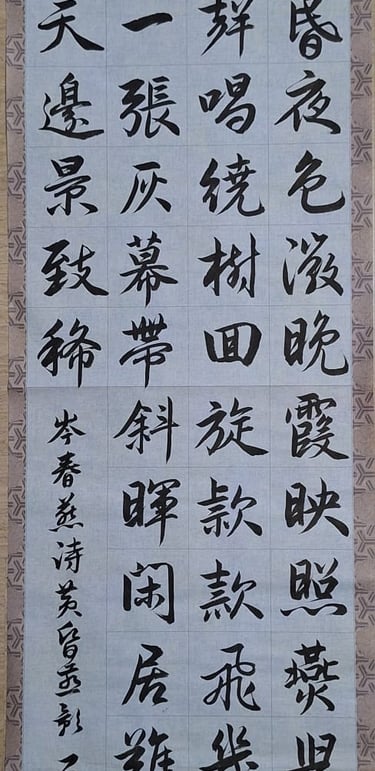 昏夜色晚霞映照燕
唱繞樹回旋款款飛幾
一張灰幕帶斜暉閑居難
天邊景致稀
岑春燕诗黄昏燕影